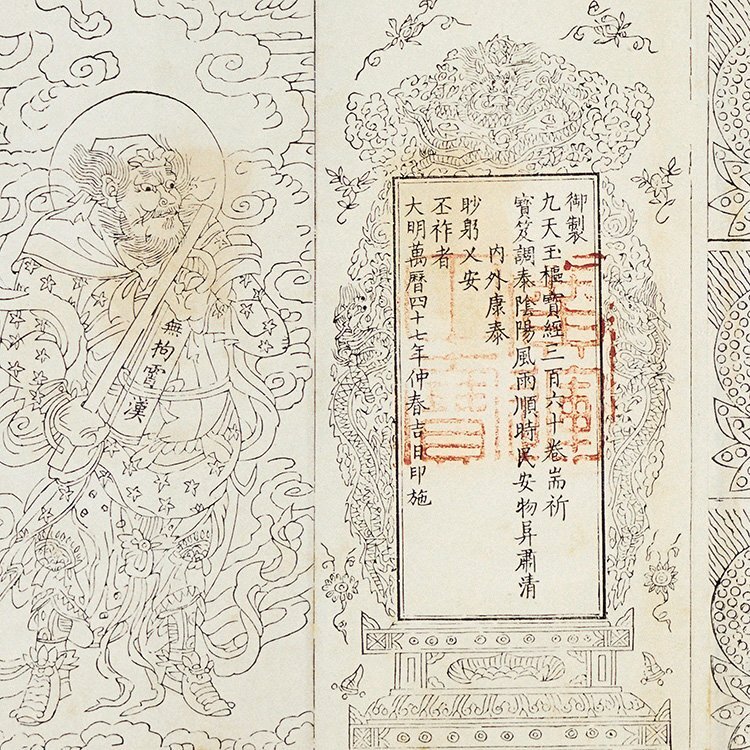 御製
九天玉樞寶經三百六十卷耑祈
寶笈調泰陰陽風雨順時民安物阜肅清
內外康泰
眇躬乂安
丕祚者
大明萬曆四十七年仲春吉日印施
無拘霄漢